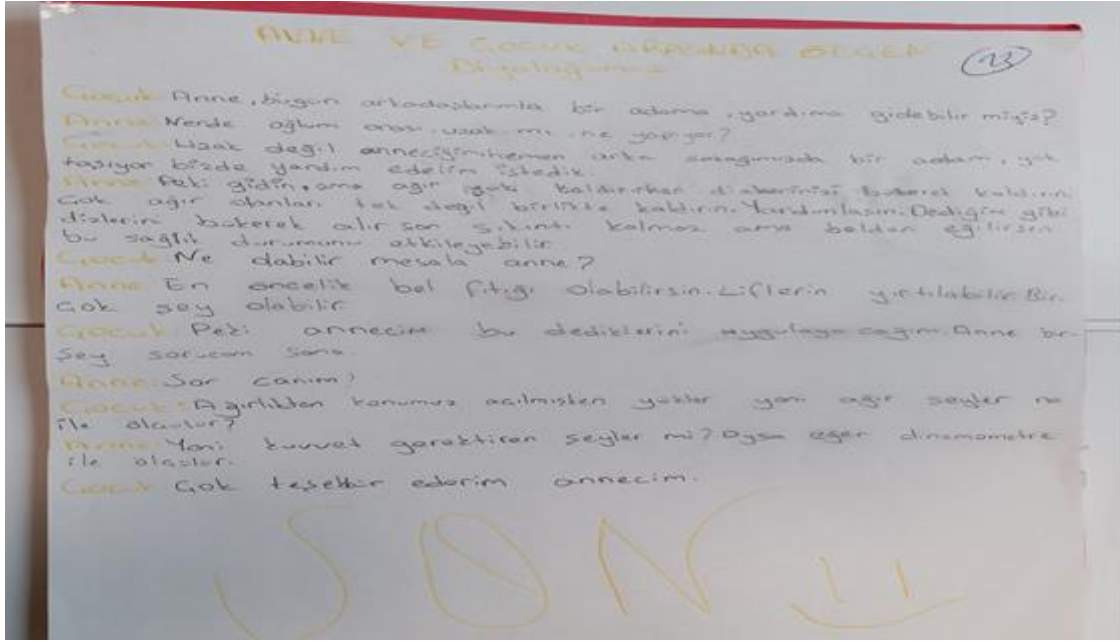 ANNE VE ÇOCUK ARASINDA GEÇEN
Diyaloğumuz
23
Çocuk: Anne, bugün arkadaşlarımla bir adama, yardıma gidebilir miyiz?
Anne: Nerde oğlum orası uzak mı, ne yapıyor?
Çocuk: Uzak değil anneciğim hemen arka sokağımızda bir adam, yük
taşıyor bizde yardım edelim istedik.
Anne: Peki gidin, ama ağır yük kaldırırken dizlerinizi bükerek kaldırın.
Çok ağır olanları tek değil birlikte kaldırın. Yardımlaşın. Dediğim gibi
dizlerini bükerek alırsan sıkıntı kalmaz ama belden eğilirsen
bu sağlık durumunu etkileyebilir.
Çocuk: Ne olabilir mesala anne?
Anne: En öncelik bel fıtığı olabilirsin. Liflerin yırtılabilir. Bir
çok şey olabilir.
Çocuk: Peki annecim bu dediklerini uygulayacağım. Anne bir
şey sorucam sana.
Anne: Sor canım?
Çocuk: Ağırlıktan konumuz açılmışken yükler yani ağır şeyler ne
ile ölçülür?
Anne: Yani kuvvet gerektiren şeyler mi? Oysa eğer dinamometre
ile ölçülür.
Çocuk: Çok teşekkür ederim annecim.
SON